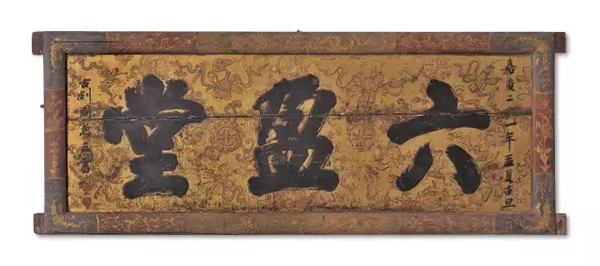 嘉慶二十一年孟夏吉旦
六盈堂